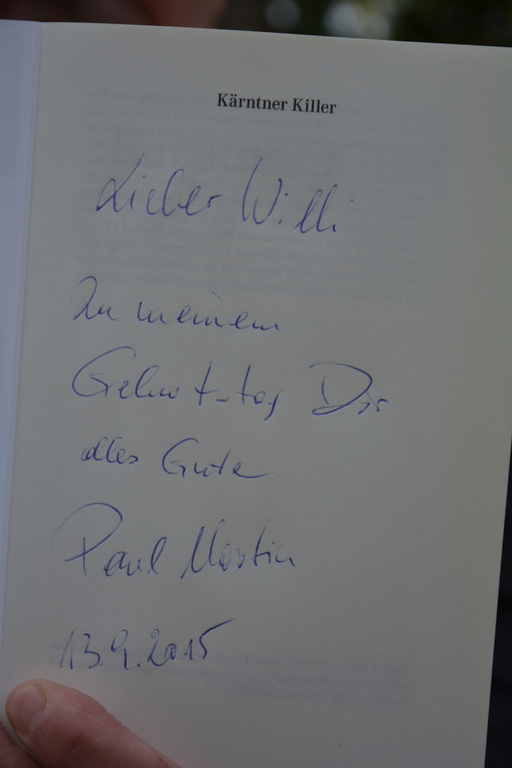 Kärntner Killer
Lieber Willi
Zu meinem
Geburtstag Dir
alles Gute
Paul Martin
13.9.2015